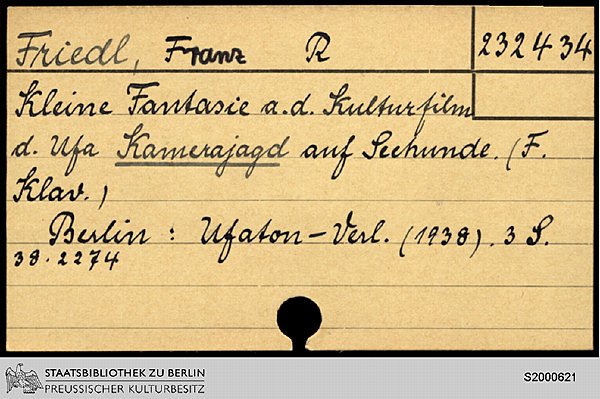 Friedl, Franz R 232434
Kleine Fantasie a.d. Kulturfilm
d. Ufa Kamerajagd auf Seehunde. (F.
Klav.)
Berlin : Ufaton-Verl. (1938). 3 S.
38.2274
STAATSBIBLIOTHEK ZU BERLIN
PREUSSISCHER KULTURBESITZ
S2000621